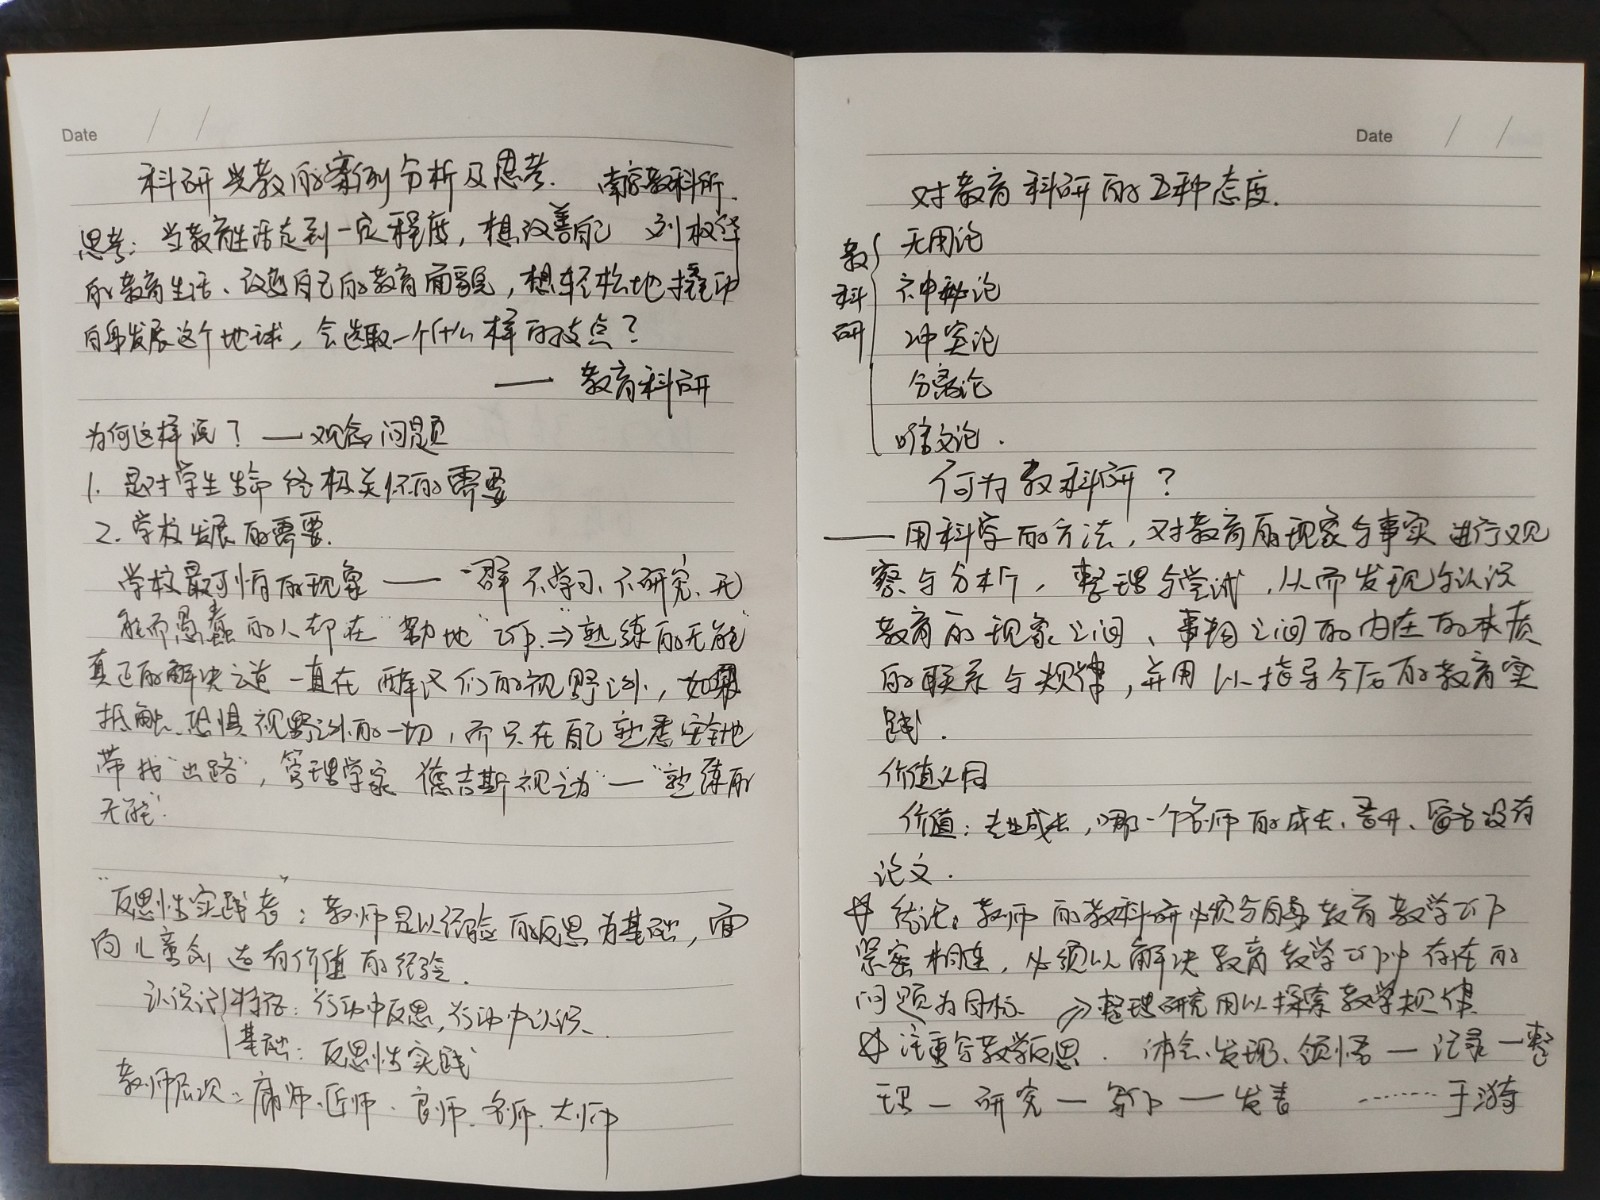 Date / /
科研兴教的案例分析及思考. 南京教科所.
思考：当教育生活走到一定程度，想改善自己
的教育生活、改造自己的教育面貌，想轻松地撬动
自身发展这个地球，会选取一个什么样的支点？
—— 教育科研
为何这样说？——观念问题
1. 是对学生生命终极关怀的需要
2. 学校发展的需要.
学校最可怕的现象——"一群不学习、不研究、无
能而愚蠢的人却在"勤地"工作.⇒"熟练的无能"
真正的解决之道一直在 我们的视野之外，如果
抵触、恐惧视野之外的一切，而只在自己熟悉安全地
带找"出路"，管理学家 德吉斯视之为"—"熟练的
无能".
"反思性实践者"：教师是以经验的反思为基础，面
向儿童创造有价值的经验.
认识论特征：行动中反思，行动中认识.
基础：反思性实践
教师层次：庸师、匠师、良师、名师、大师
Date / /
对教育科研的五种态度.
教科研
无用论
神秘论
冲突论
分离论
唯文论.
何为教科研？
——用科学的方法，对教育的现象与事实进行观
察与分析，整理与尝试，从而发现与认识
教育的现象之间、事物之间的内在的本质
的联系与规律，并用以指导今后的教育实
践.
价值认同
价值：专业成长，哪一个名师的成长、晋升、 没有
论文.
☆ 结论：教师的教科研必须与 教育教学工作
紧密相连，必须以解决教育教学工作中存在的
问题为目标 ⇒整理研究用以探索教学规律
☆ 注重与教学反思. 体会、发现、领悟—记录—整
理—研究—写作—发表 ……于漪